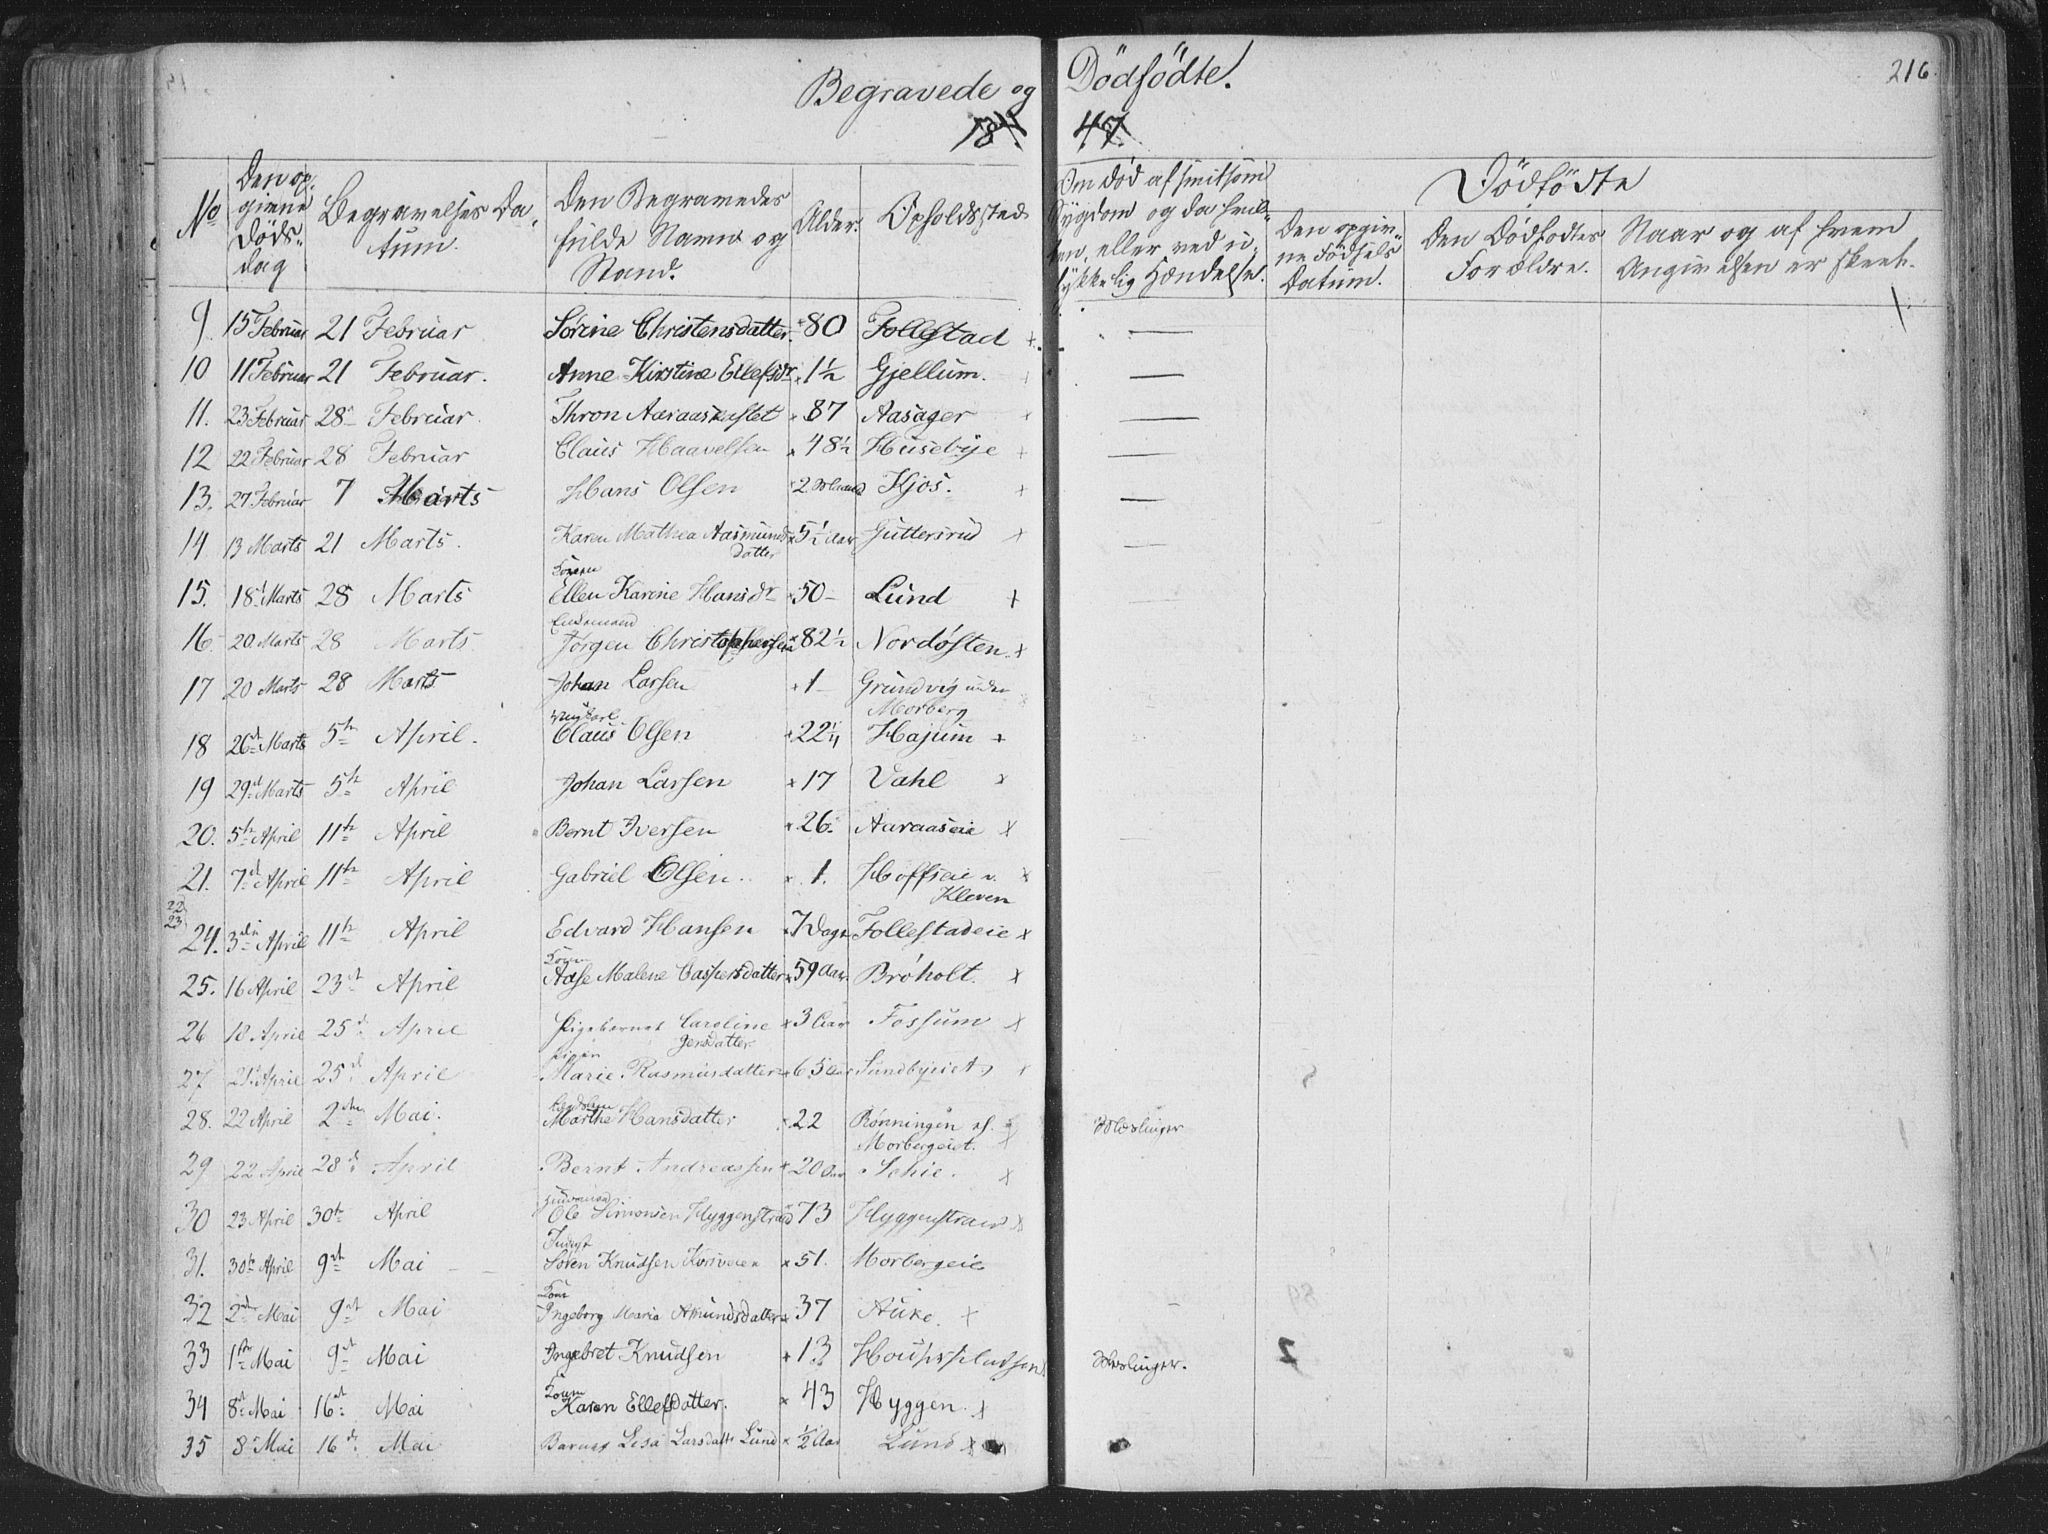 Begravede og Dödfödte.
216
1847.
No
Den op-
givne
Döds-
dag
Begravelses Da-
tum.
Den Begravedes
fulde Navn og
Stand.
Alder.
Opholdssted
Om död af smitsom
Sygdom og da hvil-
ken, eller ved u-
lykkelig Hændelse.
Dödfödte
Den opgiv-
ne Födsels
Datum.
Den Dödfödtes
Forældre.
Naar og af hvem
Angivelsen er skeet.
9. 15 Februar 21 Februar Sörine Christensdatter 80 Follestad
10 11 Februar 21 Februar. Anne Kirstine Ellefsdr 1½ Gjellum.
11. 23 Februar 28 Februar. Thron Aaraas 87 Aasager
12 22 Februar 28 Februar Claus Haavelsen 48½ Husebye
13. 27 Februar 7 Marts Hans Olsen 2 Kjos.
14 13 Marts 21 Marts. Karen Mathea Aasmunds
datter 5½ Aar Guttersrud
15. 18 Marts 28 Marts Konen
Ellen Karine Hansdr 50 Lund
16 20 Marts 28 Marts. Enkemand
Jörgen Christophersen 82½ Nordösten
17 20 Marts 28 Marts Johan Larsen 1 Grundvig under
Morberg
18 26de Marts 5te April. Ungkarl
Claus Olsen 22¼ Hajum
19 29de Marts 5te April Johan Larsen 17 Vahl
20. 5te April 11te April Bernt Iversen 26. Aaraaseie
21. 7de April 11te April Gabriel Olsen 1. Höffseie v.
Kleven
22
23
24. 3die April 11te April Edvard Hansen 7 Dage Follestadeie
25. 16 April 23de April Konen
Aase Malene Caspersdatter 59 Aar. Bröholt.
26 18 April 25de April Pigebarnet Caroline
Jensdatter 3 Aar Fossum
27 21 April 25de April Pigen
Marie Rasmusdatter 65 Aar Sundbyeiet
28. 22 April 2den Mai. Marthe Hansdatter 22 Rönningen af
Morbergeiet. Meslinger
29 22 April 28de April Bernt Andreassen 20 Aar Schie.
30 23 April 30te April Ole Simonsen Hyggenstrand 73 Hyggenstrand
31. 30te April 9de Mai Sören Knudsen Korsveien 51. Morbergeie
32 2den Mai 9de Mai Kone
Ingeborg Maria Amundsdatter 37 Auke.
33 1ste Mai 9de Mai Ingebret Knudsen 13 Meslinger.
34 8de Mai 16de Mai Konen
Karen Ellefsdatter. 43 Hyggen.
35 8 Mai 16de Mai Barnet Lisa Larsdatt. Lund ½ Aar Lund